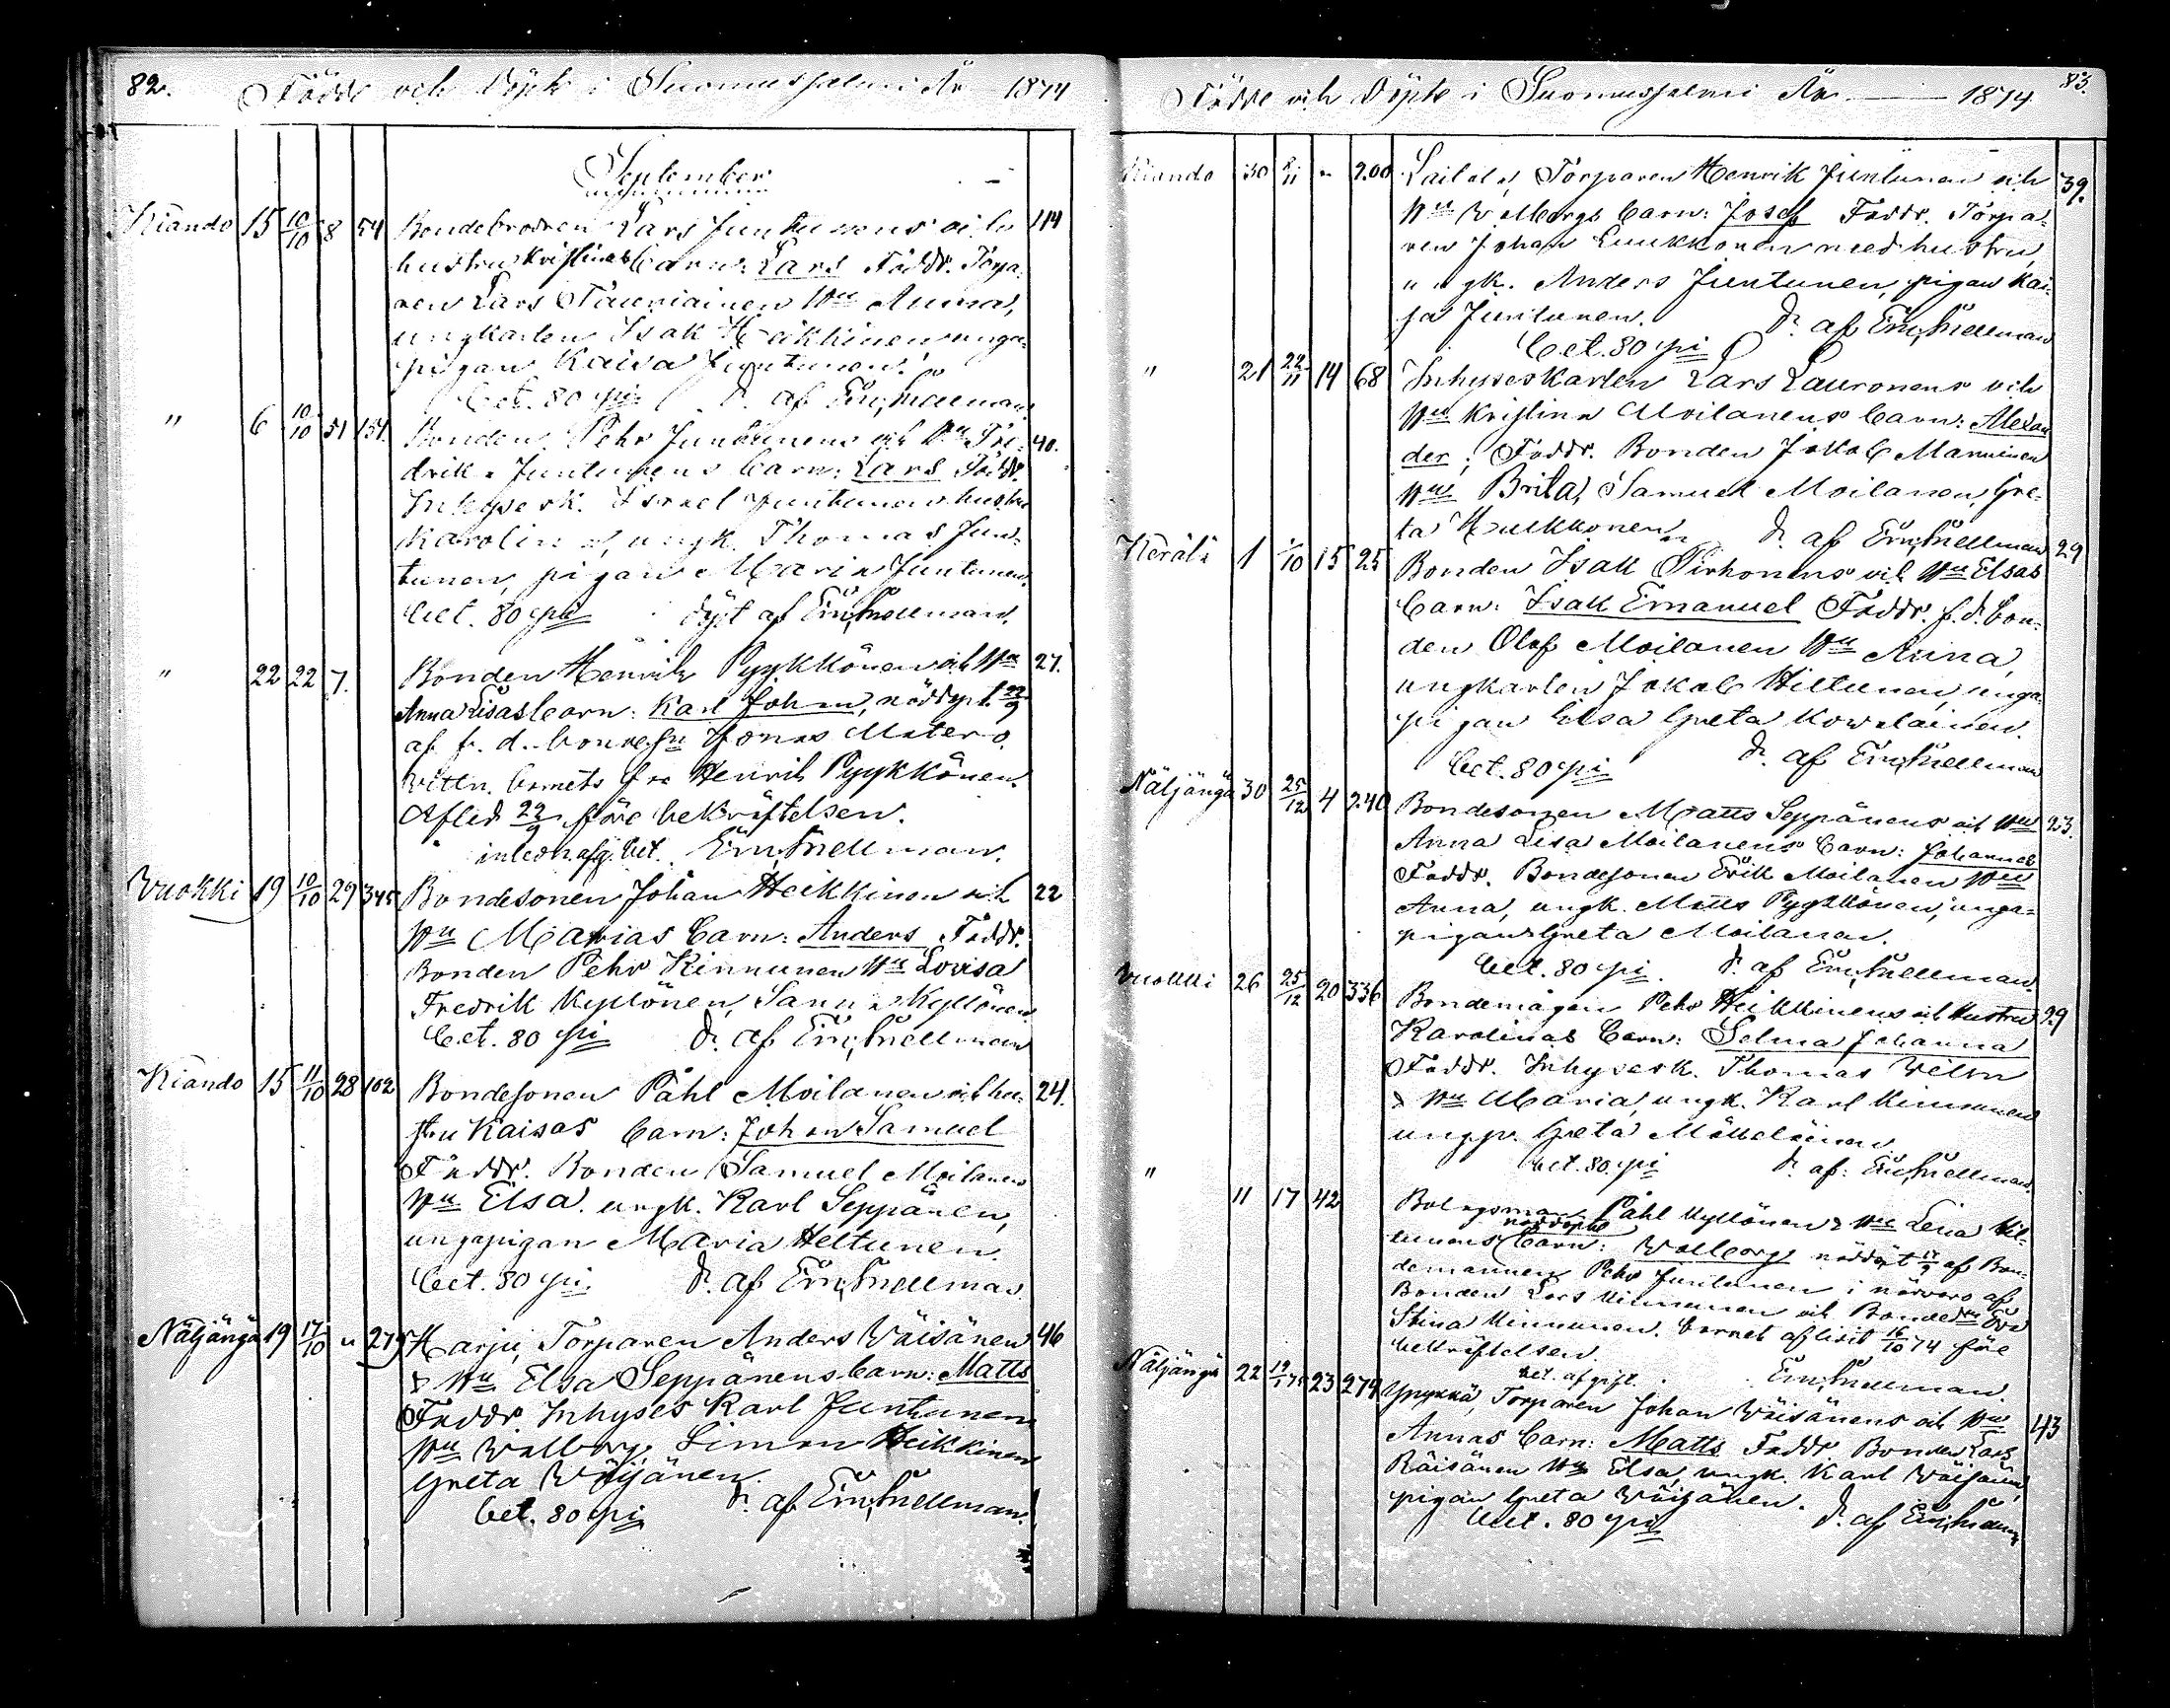 82. Födde och Döpte i Suomussalmi År 1874
September
Kiando 15 10/10 8 54 Bondebrodren Lars Juntunens och 44
hustru Kristinas barn: Lars Faddr. Törpa-
ren Lars Tauriainen Hu Anna,
ungkarlen Isak Heikkinen unga-
pigan Kaisa Juntunen.
bet. 80 pi d. af Em. Snellman
" 6 10/10 51 154. Bonden Pehr Juntunens och Hu Fre- 40.
drika Juntunens barn: Lars Faddr.
Inhysesk. Israel Juntunen hustru
Karolina, ungk. Thomas Jun-
tunen, pigan Maria Juntunen.
bet. 80 pi döpt af Em. Snellman.
" 22 22 7. Bonden Henrik Pyykkönen och Hu 27.
Anna Lisas barn: Karl Johan, nöddöpt 22/9
af f. d. bonden Jonas Matero.
Vittn. barnets far Henrik Pyykkönen.
Afled 22/9 före bekräftelsen.
bet. Em. Snellman.
Wuokki 19 10/10 29 345 Bondesonen Johan Heikkinen och 22
Hu Marias barn: Anders Faddr.
Bonden Pehr Kinnunen Hu Lovisa
Fredrik Kyllönen, Sanna Kyllönen
bet. 80 pi d. af Em. Snellman
Kiando 15 11/10 28 102 Bondesonen Påhl Moilanen och hu- 24.
stru Kaisas barn: Johan Samuel
Faddr. Bonden Samuel Moilanen
Hu Elsa. ungk. Karl Seppänen,
ungapigan Maria Heltunen.
bet. 80 pi. d. af Em. Snellman.
Näljängä 19 17/10 " 279 Harju, Törparen Anders Wäisänen 46
& Hu Elsa Seppänens barn: Matts
Faddr Inhyses Karl Juntunen
Hu Walborg, Simon Heikkinen
Greta Wäisänen.
bet. 80 pi d. af Em. Snellman.
Födde och Döpte i Suomussalmi År 1874. 83.
Kiando 30 2/11 " 200 Laitala, Törparen Henrik Juntunen och 39.
Hu Walborgs barn: Josef Faddr. Törpa-
ren Johan Luukkonen med hustru,
ungk. Anders Juntunen, pigan Kai-
sa Juntunen. d. af Em. Snellman
bet. 80 pi
" 21 22/11 14 68 Inhyseskarlen Lars Lauronens och
Hu Kristina Moilanens barn: Alexan
der; Faddr. Bonden Jakob Manninen
Hu Brita, Samuel Moilanen, Gre-
ta Hulkkonen. d. af Em. Snellman
Kerälä 1 1/10 15 25 Bonden Isak Tirhonens och Hu Elsas 29
barn: Isak Emanuel Faddr. f. d. bon-
den Olof Moilanen Hu Anna,
ungkarlen Jakob Hiltunen, unga-
pigan Elsa Greta Kowalainen.
bet. 80 pi d. af Em. Snellman
Näljängä 30 25/12 4 240 Bondesonen Matts Seppänens och Hu 23.
Anna Lisa Moilanens barn: Johannes
Faddr. Bondesonen Erik Moilanen Hu
Anna, ungk. Matts Pyykkönen, unga-
pigan Greta Moilanen.
bet. 80 pi. d. af Em. Snellman.
Vuokki 26 25/12 20 336 Bondemågen Pehr Heikkinens och Hustru 29
Karolinas barn: Selma Johanna
Faddr. Inhysesk. Thomas
& Hu Maria, ungk. Karl Kinnunen
ungp. Greta Määttäinen
bet. 80. pi d. af: Em. Snellman.
" 11 17 42 Bolagsman Påhl Kyllönen & Hu Lena Kil-
nöddöpte
lunens barn: Walborg nöddöpt 17/9 af Bon-
demannen Pehr Juntunen i närvaro af
Bonden Lars Kinnunen och Bonde Hu Eva
Stina Kinnunen. barnet aflidit 16/10 74 före
bekräftelsen.
bet. afgift. Em. Snellman.
Näljängä 22 19/1 75 23 274 Törparen Johan Wäisänens och Hu 43
Annas barn: Matts Faddr Bonden Lars
Räisänen Hu Elsa, ungk. Karl Wäisänen,
pigan Greta Wäisänen.
bet. 80 pi d. af Em. Snellman